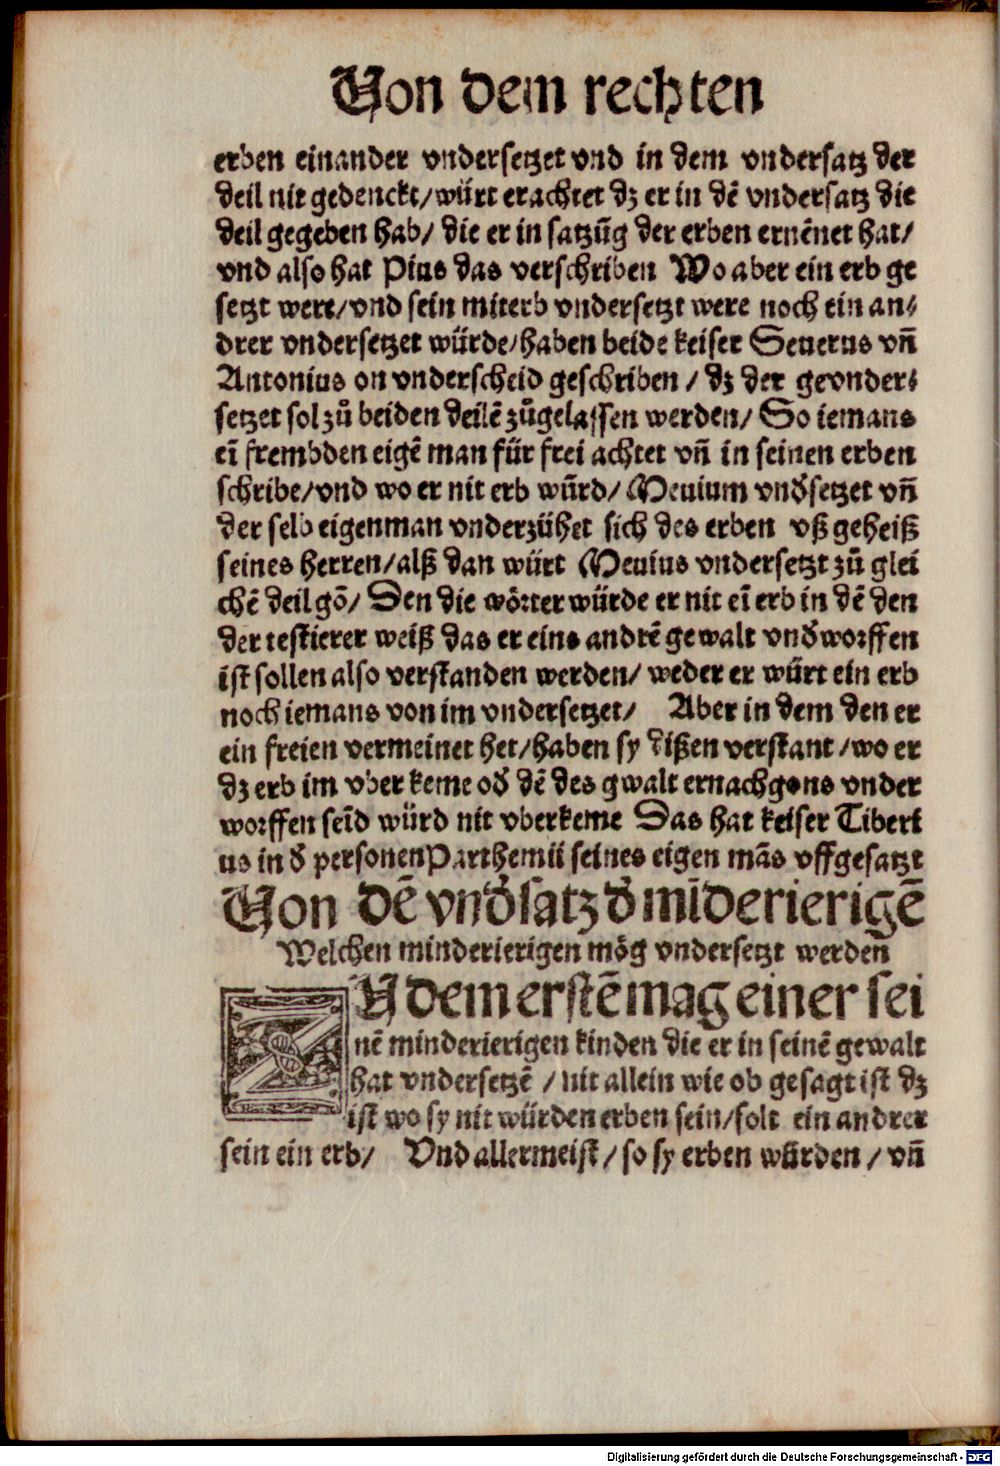 Von dem rechten
erben einander vndersetzet vnd in dem vndersatz der
deil nit gedenckt/würt erachtet dz er in dē vndersatz die
deil gegeben hab/ die er in satzūg der erben ernēnet hat/
vnd also hat Pius das verschriben Wo aber ein erb ge
setzt were/vnd sein miterb vndersetzt were noch ein an⸗
drer vndersetzet würde/haben beide keiser Seuerus vn̄
Antonius on vnderscheid geschriben / dz der gevnder⸗
setzet sol zů beiden deilē zůgelassen werden/ So iemans
eī frembden eigē man für frei achtet vn̄ in seinen erben
schribe/vnd wo er nit erb wůrd/ Meuium vnd̕setzet vn̄
der selb eigenman vnderzühet sich des erben vß geheiß
seines herren/alß dan würt Meuius vndersetzt zů glei
chē deil gō/ Den die wörter würde er nit eī erb in dē den
der testierer weiß das er eins andrē gewalt vnd̕worffen
ist sollen also verstanden werden/ weder er wůrt ein erb
noch iemans von im vndersetzet/ Aber in dem den er
ein freien vermeinet het/haben sy dißen verstant /wo er
dz erb im vber keme od̕ dē des gwalt ernachgons vnder
worffen seīd würd nit vberkeme Das hat keiser Tiberi
us in d̕ personen Parthemii seines eigen mās vffgesatzt
Von dē vnd̕satz d̕ mīderierigē
Welchen minderierigen mög vndersetzt werden
ZV dem erstē mag einer sei
nē minderierigen kinden die er in seinē gewalt
hat vndersetzē / nit allein wie ob gesagt ist dz
ist wo sy nit würden erben sein/solt ein andrer
sein ein erb/ Vnd allermeist / so sy erben wůrden / vn̄
Digitalisierung gefördert durch die Deutsche Forschungsgemeinschaft - DFG